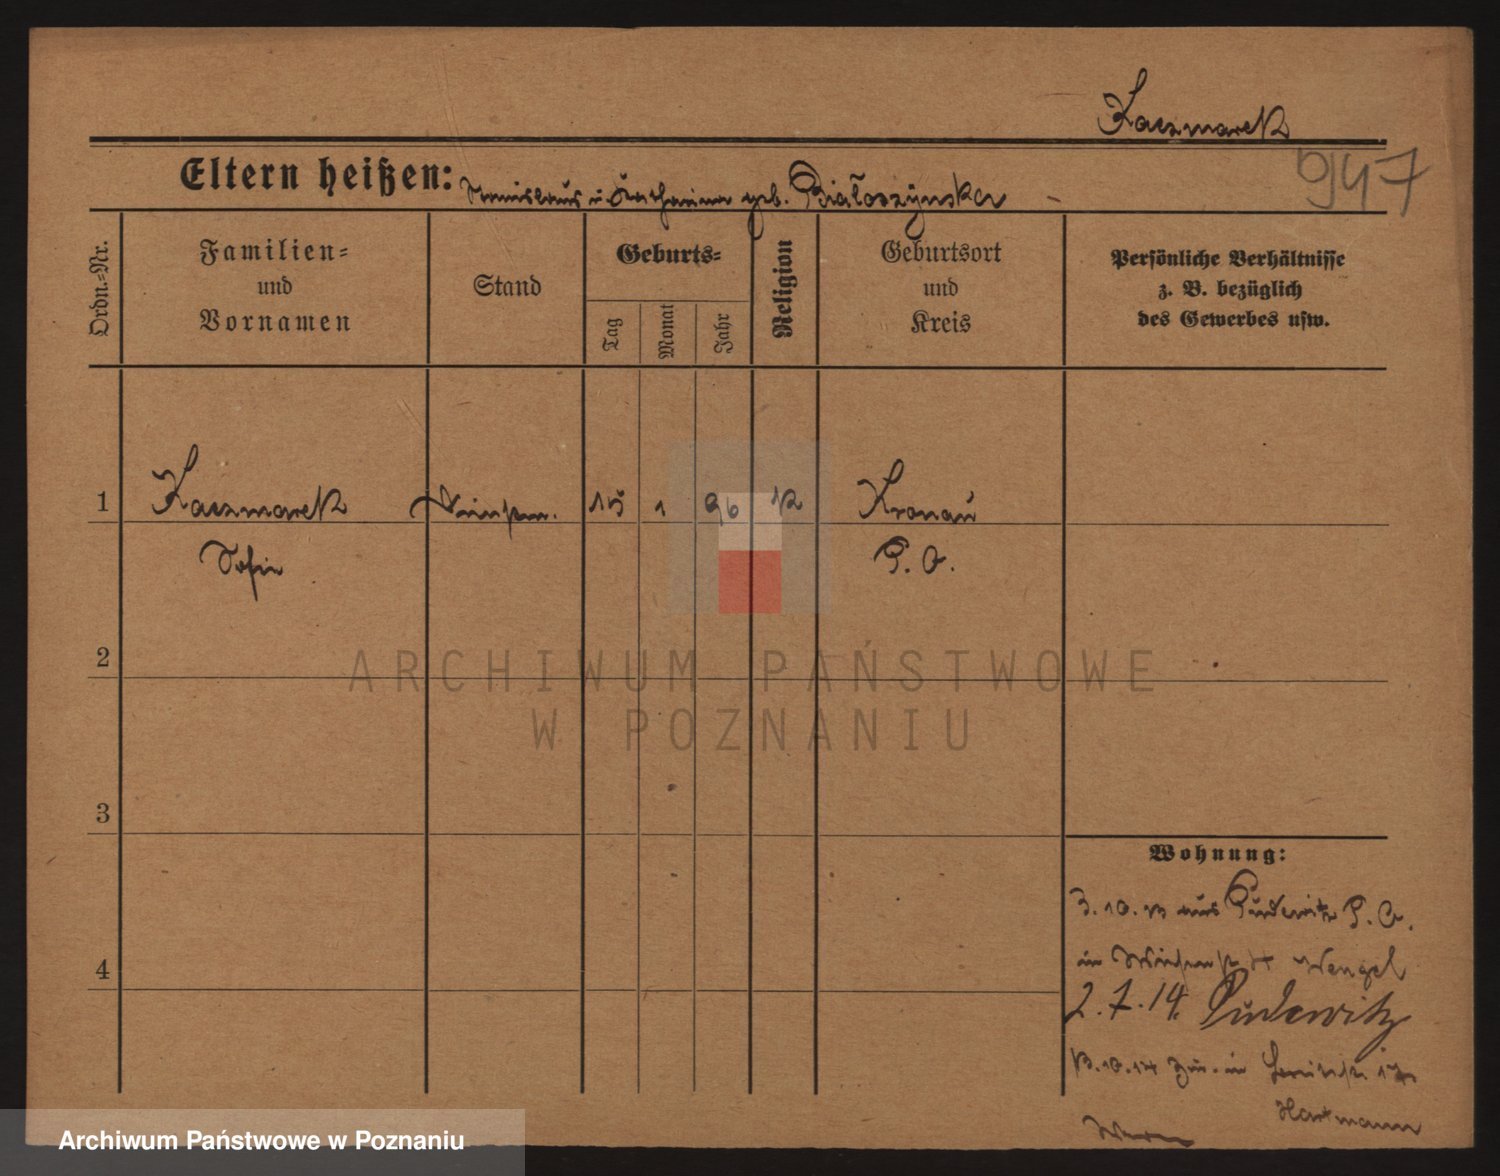 Kaczmarek
947
Eltern heißen: Stanislaus u. Katharina geb. Białoszýnska
Ordn.-Nr.
Familien-
und
Vornamen
Stand
Geburts-
Tag
Monat
Jahr
Religion
Geburtsort
und
Kreis
Persönliche Verhältnisse
z. B. bezüglich
des Gewerbes usw.
1 Kaczmarek 15 1 96 K Kronau
Sofie P. O.
2
ARCHIWUM PAŃSTWOWE
W POZNANIU
3
Wohnung:
3.10.13 aus Pudewitz P. O.
in Wengel
4
2.7.14. Pudewitz
10.14 in 17
Hartmann
Archiwum Państwowe w Poznaniu